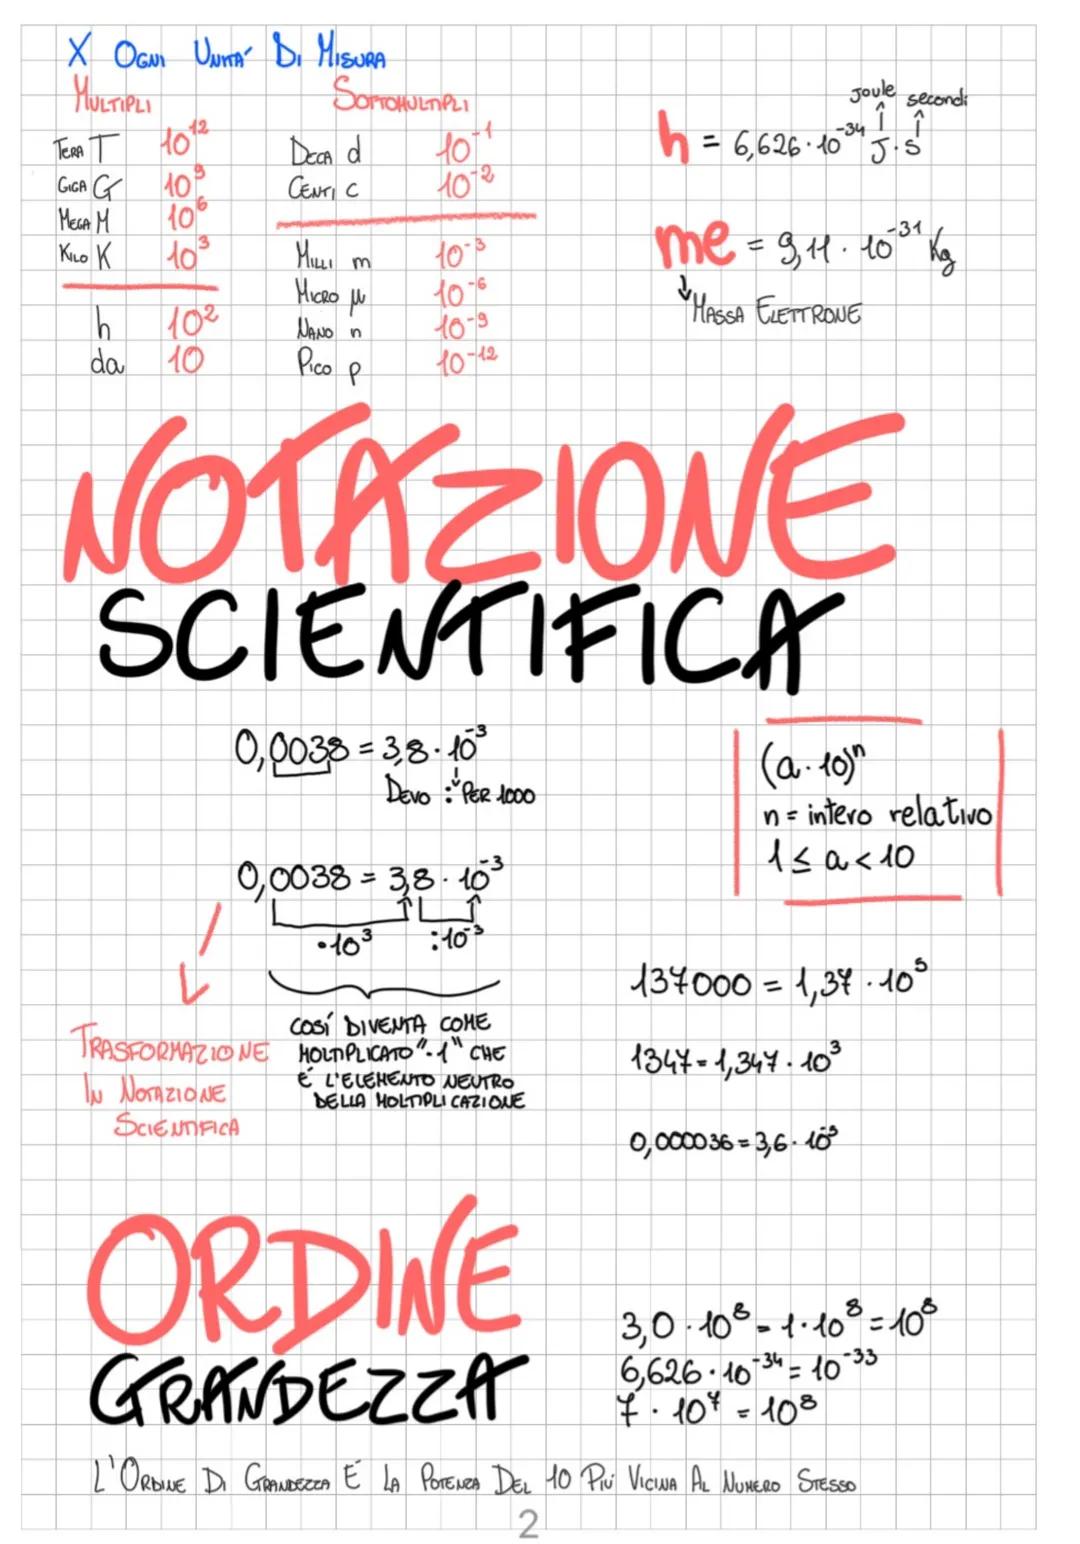 X OGNI UNITA' DI MISURA
MULTIPLI
TERA T 10¹²
GIGA G 10⁹
MEGA M 10⁶
KILO K 10³
h 10²
da 10
SOTTOMULTIPLI
DECA d 10⁻¹
CENTI c 10⁻²
MILLI m 10⁻³
MICRO μ 10⁻⁶
NANO n 10⁻⁹
PICO p 10⁻¹²
Joule secondi
h = 6,626·10⁻³⁴ J·s
me = 9,11·10⁻³¹ Kg
MASSA ELETTRONE
NOTAZIONE
SCIENTIFICA
0,0038 = 3,8·10⁻³
DEVO : PER 1000
0,0038 = 3,8·10⁻³
·10³ :10⁻³
TRASFORMAZIONE
IN NOTAZIONE
SCIENTIFICA
COSÍ DIVENTA COME
MOLTIPLICATO "·1" CHE
É L'ELEMENTO NEUTRO
DELLA MOLTIPLICAZIONE
(a·10)ⁿ
n = intero relativo
1 ≤ a < 10
137000 = 1,37·10⁵
1347 = 1,347·10³
0,000036 = 3,6·10⁻⁵
ORDINE
GRANDEZZA
3,0·10⁸ - 1·10⁸ = 10⁸
6,626·10⁻³⁴ = 10⁻³³
7·10⁷ = 10⁸
L'ORDINE DI GRANDEZZA É LA POTENZA DEL 10 PIÚ VICINA AL NUMERO STESSO
2